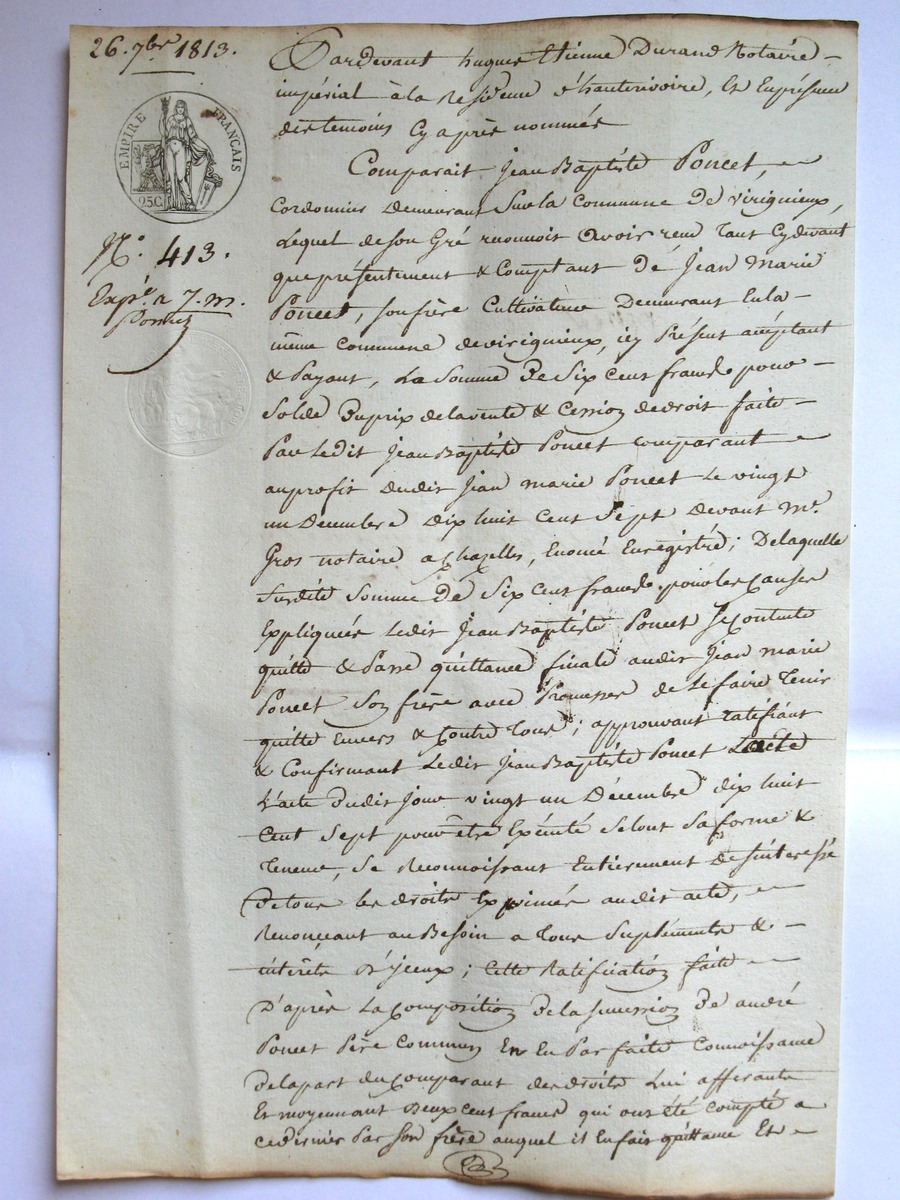 26. 7bre 1813.
EMPIRE FRANÇAIS
25C.
N.° 413.
Expé. a 7. m.
Pardevant hugues Etienne Durand Notaire
impérial à la Residence d'hauterivoire, Et En présence
des temoins Cy après nommés
Comparait Jean Baptiste Poncet,
Cordonnier Demeurant Sur la Commune De virignieux,
Lequel de son Gré reconnoit avoir reçu Tant Cydevant
que présentement & Comptant De Jean Marie
Poncet, son frère Cultivateur Demeurant En la
même Commune de virignieux, icy Présent acceptant
& Payant, La Somme De Six Cent francs pour
Solde Du prix de la vente & Cession de droit faite
Par Ledit Jean Baptiste Poncet comparant
au profit dudit Jean marie Poncet Le vingt
un Decembre Dix huit Cent Sept Devant Mr.
Gros notaire a Chazelles, Enregistré; De laquelle
Susdite Somme De Six Cent francs pour les Causes
Expliquées Ledit Jean Baptiste Poncet Se Contente
quitte & Passe quittance finale audit Jean marie
Poncet Son frère avec Promesse de Le faire Tenir
quitte Envers & Contre Tous; approuvant ratifiant
& Confirmant Ledit Jean Baptiste Poncet
L'acte dudit Jour vingt un Décembre dix huit
Cent Sept pour être Exécuté Selont Sa forme &
Teneur, Se Reconnoissant Entierement Desinteressé
De tous les droits Exprimés audit acte,
Renonceant au Besoin a Tous Supléments &
intérêts D'yceux; Cette Ratification faite
D'après La Composition de la succession De andré
Poncet Père Commun En En Parfaite Connoissance
de la part du Comparant des droits Lui afferants
Et moyennant Deux cent francs qui ont été compté a
ce dernier Par Son frère auquel il En fait quittance Et